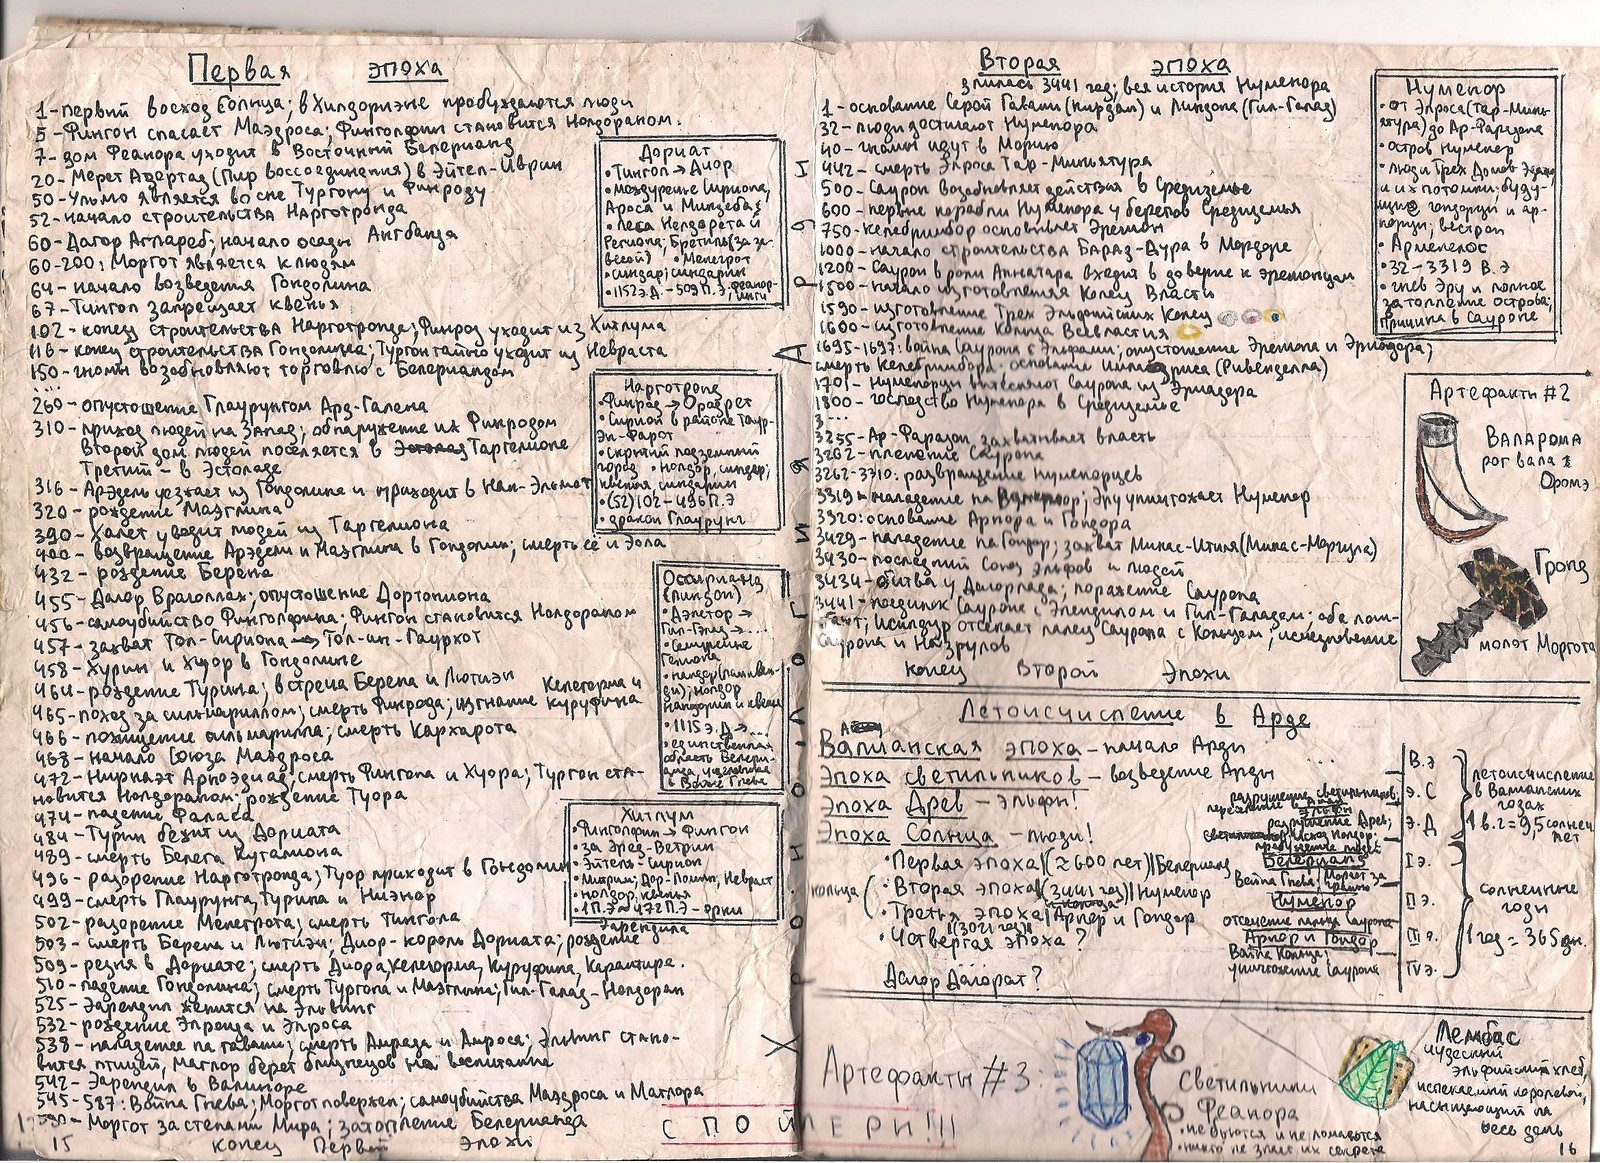 Первая эпоха
1 - первый восход Солнца; в Хилдориэне пробуждаются люди
5 - Фингон спасает Маэдроса; Финголфин становится Нолдораном.
7 - дом Феанора уходит в Восточный Белерианд
20 - Мерет Адертад (Пир воссоединения) в Эйтел-Иврин
50 - Ульмо является во сне Тургону и Финроду
52 - начало строительства Нарготронда
60 - Дагор Аглареб; начало осады Ангбанда
60-200: Моргот является к людям
64 - начало возведения Гондолина
67 - Тингол запрещает квенья
102 - конец строительства Нарготронда; Финрод уходит из Хитлума
116 - конец строительства Гондолина; Тургон тайно уходит из Невраста
150 - гномы возобновляют торговлю с Белериандом
...
260 - опустошение Глаурунгом Ард-Галена
310 - приход людей на Запад; обнаружение их Финродом
Второй дом людей поселяется в Таргелионе
Третий - в Эстоладе
316 - Арэдель уезжает из Гондолина и приходит в Нан-Эльмот
320 - рождение Маэглина
390 - Халет уводит людей из Таргелиона
400 - возвращение Арэдели и Маэглина в Гондолин; смерть её и Эола
432 - рождение Берена
455 - Дагор Браголлах; опустошение Дортониона
456 - самоубийство Финголфина; Фингон становится Нолдораном
457 - захват Тол-Сириона → Тол-ин-Гаурхот
458 - Хурин и Хуор в Гондолине
464 - рождение Турина; встреча Берена и Лютиэн
465 - поход за сильмариллом; смерть Финрода; изгнание Келегорма и Куруфина
466 - похищение сильмарилла; смерть Кархарота
468 - начало Союза Маэдроса
472 - Нирнаэт Арноэдиад; смерть Фингона и Хуора; Тургон ста-
новится Нолдораном; рождение Туора
474 - падение Фаласа
484 - Турин бежит из Дориата
489 - смерть Белега Куталиона
496 - разорение Нарготронда; Туор приходит в Гондолин
499 - смерть Глаурунга, Турина и Ниэнор
502 - разорение Менегрота; смерть Тингола
503 - смерть Берена и Лютиэн; Диор - король Дориата; рождение Эарендила
509 - резня в Дориате; смерть Диора, Келегорма, Куруфина, Карантира.
510 - падение Гондолина; смерть Тургона и Маэглина; Гил-Галад - Нолдоран
525 - Эарендил женится на Эльвинг
532 - рождение Элронда и Элроса
538 - нападение на гавани; смерть Амрада и Амроса; Эльвинг стано-
вится птицей, Маглор берет близнецов на воспитание
542 - Эарендил в Валиноре
545-587: Война Гнева; Моргот повержен; самоубийства Маэдроса и Маглора
590 - Моргот за стенами Мира; затопление Белерианда
15 конец Первой эпохи
Дориат
• Тингол → Диор
• междуречье Сириона,
Ароса и Миндеба;
• леса Нелдорета и
Региона; Бретиль (за за-
весой) • Менегрот
• синдар; синдарин
• 1152 Э.Д. - 509 П.Э, феанор-
инги
Нарготронд
• Финрод → Ородрет
• Сирион в районе Таур-
Эн-Фарот
• скрытый подземный
город • нолдор, синдар;
квенья синдарин
• (52)102-496 П.Э
• дракон Глаурунг
Оссирианд
(Линдон)
• Дэнетор →
Гил-Гэлад → ...
• Семиречье
Гелиона
нолдор
нандорин и квенья
• 1115 Э.Д → ...
• единственная
область Белери-
анда, уцелевшая
в Войне Гнева
Хитлум
• Финголфин → Фингон
• за Эред-Ветрин
• Эйтель-Сирион
• Митрим; Дор-Ломин, Невраст
• нолдор, квенья
• 1 П.Э - 472 П.Э - орки
Хронология Арды
СПОЙЛЕРЫ!!!
Вторая эпоха
длилась 3441 год; вся история Нуменора
1 - основание Серой Гавани (Кирдан) и Линдона (Гил-Галад)
32 - люди достигают Нуменора
40 - гномы идут в Морию
442 - смерть Элроса Тар-Миньятура
500 - Саурон возобновляет действия в Средиземье
600 - первые корабли Нуменора у берегов Средиземья
750 - Келебримбор основывает Эрегион
1000 - начало строительства Барад-Дура в Мордоре
1200 - Саурон в роли Аннатара входит в доверие к эрегионцам
1500 - начало изготовления Колец Власти
1590 - изготовление Трех Эльфийских Колец
1600 - изготовление Кольца Всевластия
1695-1697: война Саурона с Эльфами; опустошение Эрегиона и Эриадора;
смерть Келебримбора. основание Имладриса (Ривенделла)
1701 - Нуменорцы вытесняют Саурона из Эриадора
1800 - господство Нуменора в Средиземье
3...
3255 - Ар-Фаразон захватывает власть
3262 - пленение Саурона
3262-3310: развращение нуменорцев
3319 - нападение на Валинор; Эру уничтожает Нуменор
3320: основание Арнора и Гондора
3429 - нападение на Гондор; захват Минас-Итиля (Минас-Моргула)
3430 - последний Союз Эльфов и Людей
3434 - битва у Дагорлада; поражение Саурона
3441 - поединок Саурона с Элендилом и Гил-Галадом; оба поги-
бают; Исилдур отсекает палец Саурона с Кольцом; исчезновение
Саурона и Назгулов
конец Второй Эпохи
Нуменор
• от Элроса (Тар-Минь-
ятура) до Ар-Фаразона
• остров Нуменор
• люди Трех Домов Эдайн
и их потомки; буду-
щие гондорцы и ар-
норцы; вестрон
• Арменелос
• 32-3319 В.Э
• гнев Эру и полное
затопление острова;
причина в Сауроне
Артефакты #2
ВАЛАРОМА
рог вала
Оромэ
Гронд
молот Моргота
Летоисчисление в Арде
Валианская эпоха - начало Арды
Эпоха светильников - возведение Арды
Эпоха Древ - эльфы!
Эпоха Солнца - люди!
• Первая эпоха (≈ 600 лет) Белерианд
кольца
• Вторая эпоха (3441 год) Нуменор
• Третья эпоха (3021 год) Арнор и Гондор
• Четвертая эпоха ?
Дагор Дагорат?
разрушение светильников;
разрушение Древ;
пробуждение людей
Белерианд
Война Гнева; Моргот за гранью
Нуменор
отсечение пальца Саурона
Арнор и Гондор
Война Кольца;
уничтожение Саурона
В.Э
Э.С
Э.Д
I э.
II э.
III э.
IV э.
летоисчисление
в Валианских
годах
1 в.г = 9,5 солнеч
лет
солнечные
годы
1 год = 365 дн.
Артефакты #3
Светильники
Феанора
• не бьются и не ломаются
• никто не знает их секрета
Лембас
чудесный
эльфийский хлеб,
испекаемый королевой,
насыщающий на
весь день
16